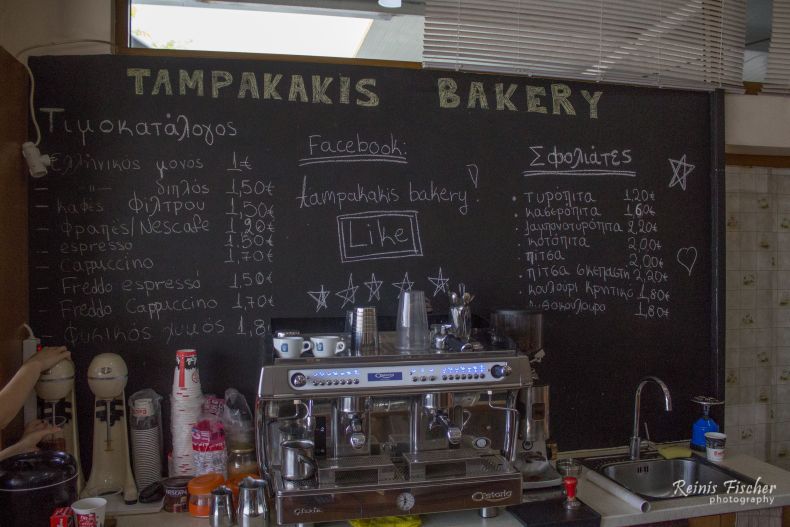 TAMPAKAKIS BAKERY
Τιμοκατάλογος
- ελληνικός μονος 1€
- -"- διπλός 1,50€
- καφές φίλτρου 1,50€
- Φραπές/Nescafe 1,20€
- espresso 1,50€
- Cappuccino 1,70€
- Freddo espresso 1,50€
- Freddo Cappuccino 1,70€
- Φυσικός χυμός 1,8
Facebook:
tampakakis bakery!
Like
Σφολιάτες
• τυρόπιτα 1,20€
• κασερόπιτα 1,60€
• λαμπονοτυρόπιτα 2,20€
• κοτόπιτα 2,00€
• πίτσα 2,00€
• πίτσα σκεπαστή 2,20€
• κουλουρι κρητικό 1,80€
1,80€
Gloria
Astoria
Reinis Fischer
photography